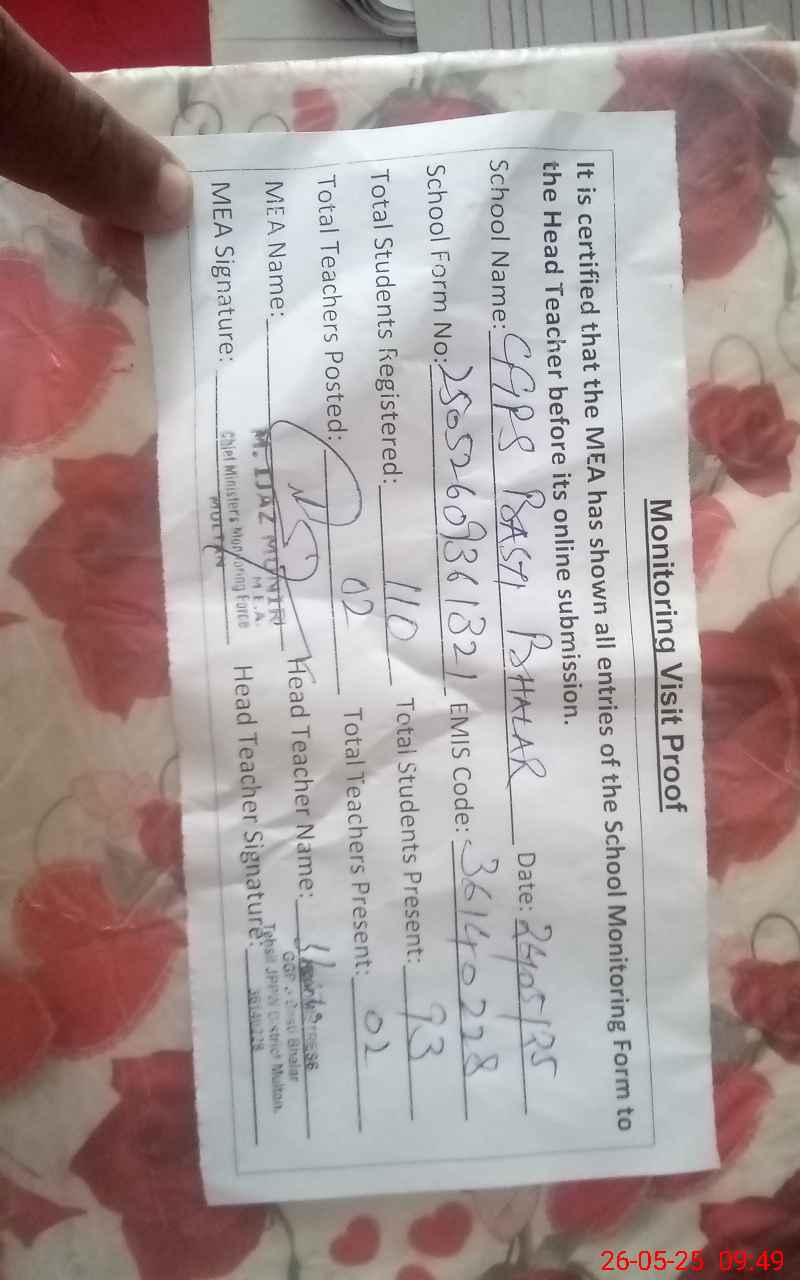 Monitoring Visit Proof
It is certified that the MEA has shown all entries of the School Monitoring Form to
the Head Teacher before its online submission.
School Name: GGPS BASTI BHALAR Date: 26/05/25
School Form No: 25052609361321 EMIS Code: 36140228
Total Students Registered: 110 Total Students Present: 93
Total Teachers Posted: 02 Total Teachers Present: 02
MEA Name: M. IJAZ MUNIR Head Teacher Name:
M.E.A.
MEA Signature: Chief Ministers Monitoring Force Head Teacher Signature:
MULTAN
Basti Bhalar
Tehsil JPPW District Multan.
36140228
26-05-25 09:49